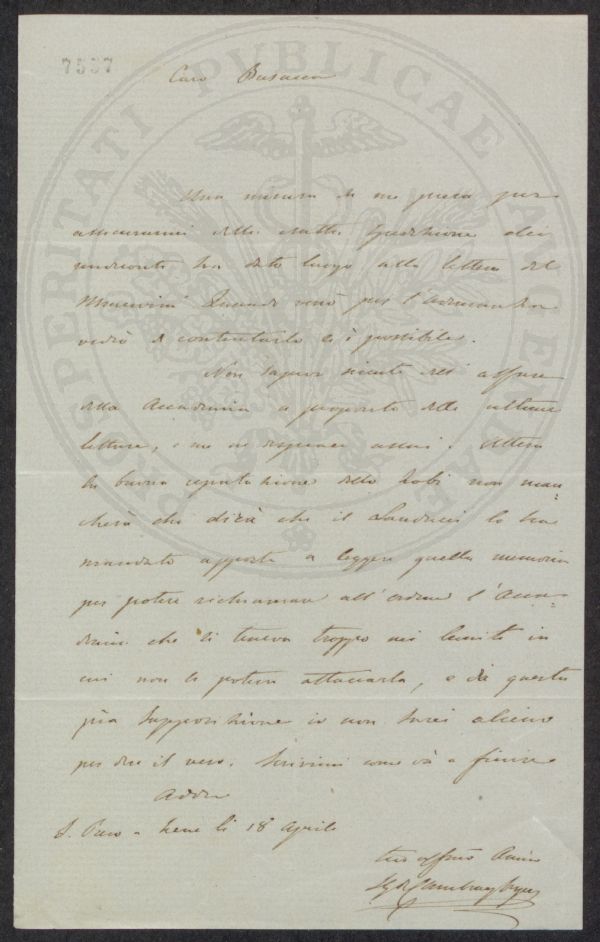 7557
PROSPERITATI PVBLICAE AVGENDAE
Caro Busacca
Una misura da me presa per
assicurarmi della esatta spedizione dei
rendiconti ha dato luogo alla lettera del
Quando verrà per l'
vedrò di contentarlo se è possibile.
Non sapevo niente dell' affare
della Accademia a proposito delle ultime
letture, e me ne dispiace assai. Attesa
la buona reputazione dello non man=
cherà chi dica che il Landucci lo ha
mandato apposta a leggere quella memoria
per potere richiamare all' ordine l' Acca=
demia che si teneva troppo nei limiti in
cui non la poteva attaccarla, e da questa
pia supposizione io non sarei alieno
per dire il vero. Scrivimi come và a finire
Addio
S. Pancrazio li 18 Aprile
tuo affmo Amico